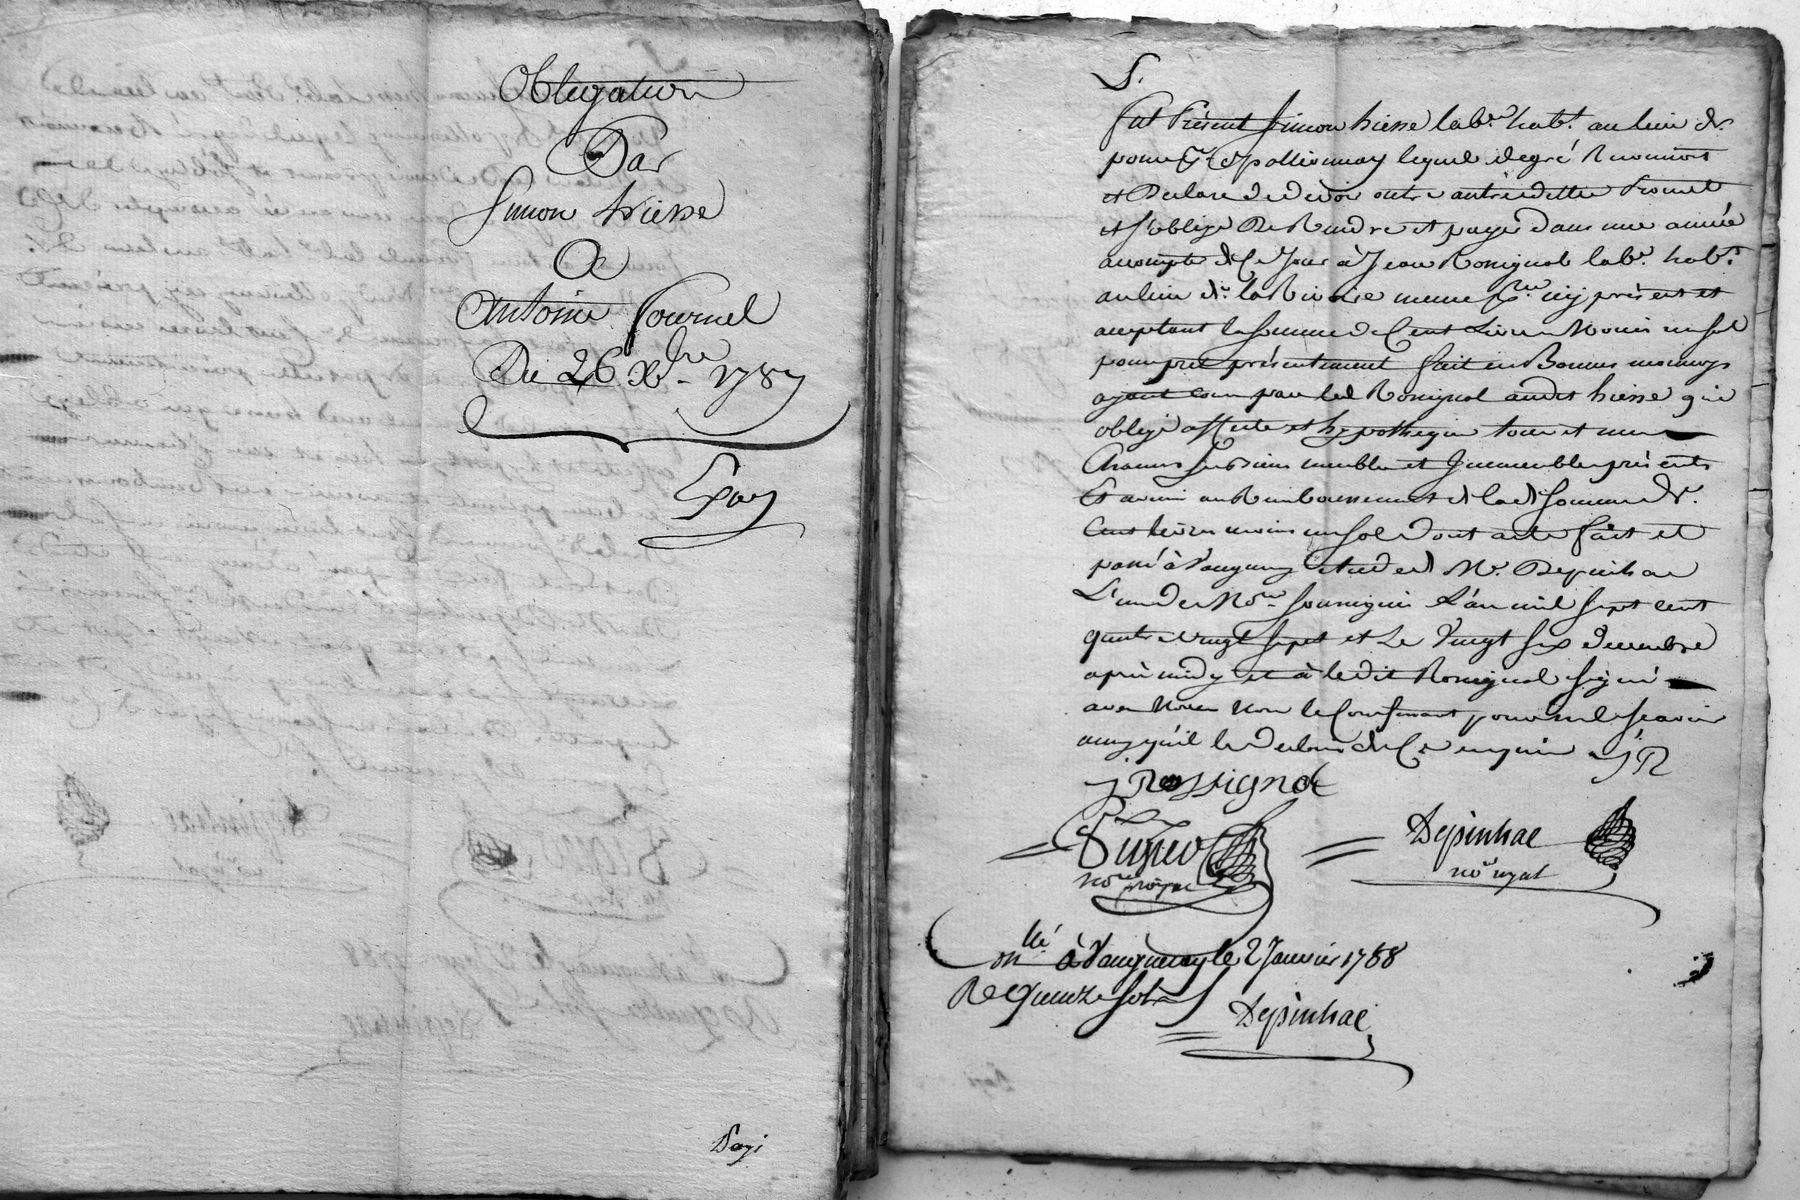 Obligation
Par
Simon hiesse
A
Antoine Fournel
Du 26 Xbre 1787
Exp
Payé
S.
Fut Présent Simon hiesse labr. habt. au lieu de
parse dpollionnay lequel de gré Reconnoit
et Declare devoir outre autre dette Promet
et s'oblige De Rendre et payer dans une année
a compter de Ce Jour à Jean Rossignol labr. habt.
au lieu de la Rivoire meme psse icy présent et
acceptant la somme de Cent Livres Moins un sol
pour pret présentement fait en Bonnes monnoys
ayant cours par led Rossignol audit hiesse qui
oblige affecte et hypotheque tous et uns
Chacuns ses Biens meubles et Jmmeubles présents
Et avenir au Remboursement de lad somme de
Cent livres moins un sol Dont acte fait et
passé à Vaugneray etude de Me. Depinhac
L'un des Nores. soussignés L'an mil sept cent
quatre vingt sept et Le Vingt six decembre
après midy et à le dit Rossignol signé
avec Nous Non le Confessant pour ne le scavoir
ainsy qu'il la declaré de Ce enquis J R
J Rossignol
nore royal
Depinhac
nore royal
onllé à Vaugneray le 2 Janvier 1788
Re Quinze sols
Depinhac